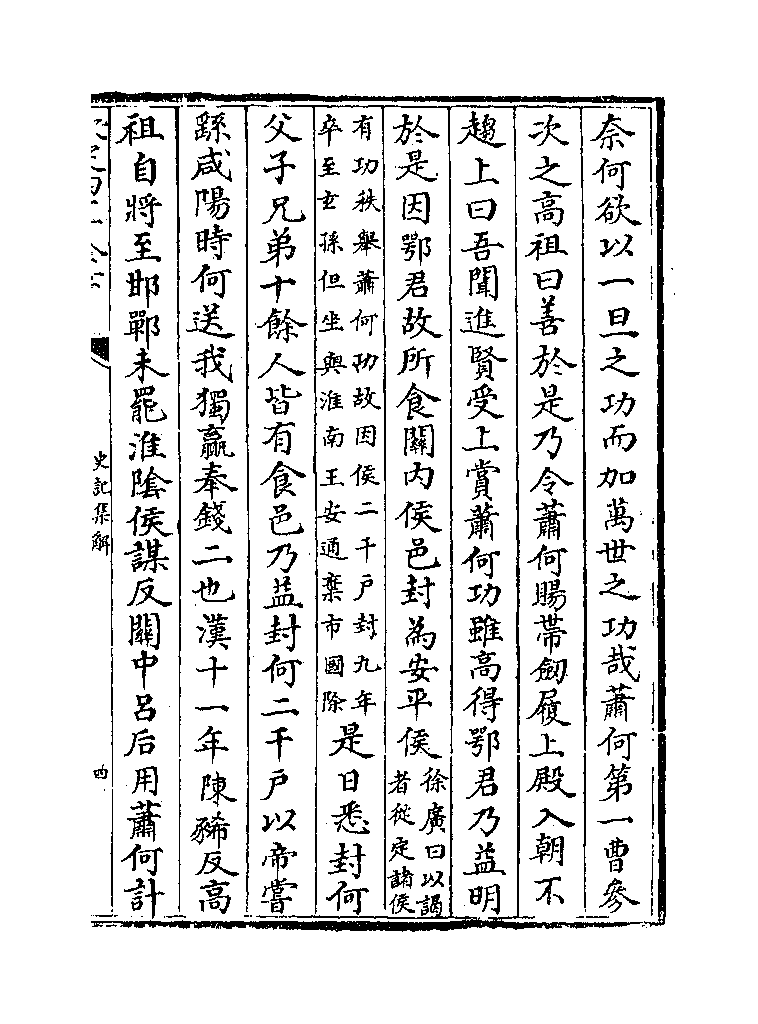 奈何欲以一旦之功而加萬世之功哉蕭何第一曹參
次之高祖曰善於是乃令蕭何賜帶劒履上殿入朝不
趨上曰吾聞進賢受上賞蕭何功雖高得鄂君乃益明
於是因鄂君故所食關内侯邑封為安平侯徐廣曰以謁者從定諸侯
有功秩舉蕭何功故因侯二千户封九年卒至玄孫但坐與淮南王安通棄市國除是日悉封何
父子兄弟十餘人皆有食邑乃益封何二千户以帝嘗
繇咸陽時何送我獨贏奉錢二也漢十一年陳豨反高
祖自將至邯鄲未罷淮隂侯謀反關中吕后用蕭何計
史記集解
四